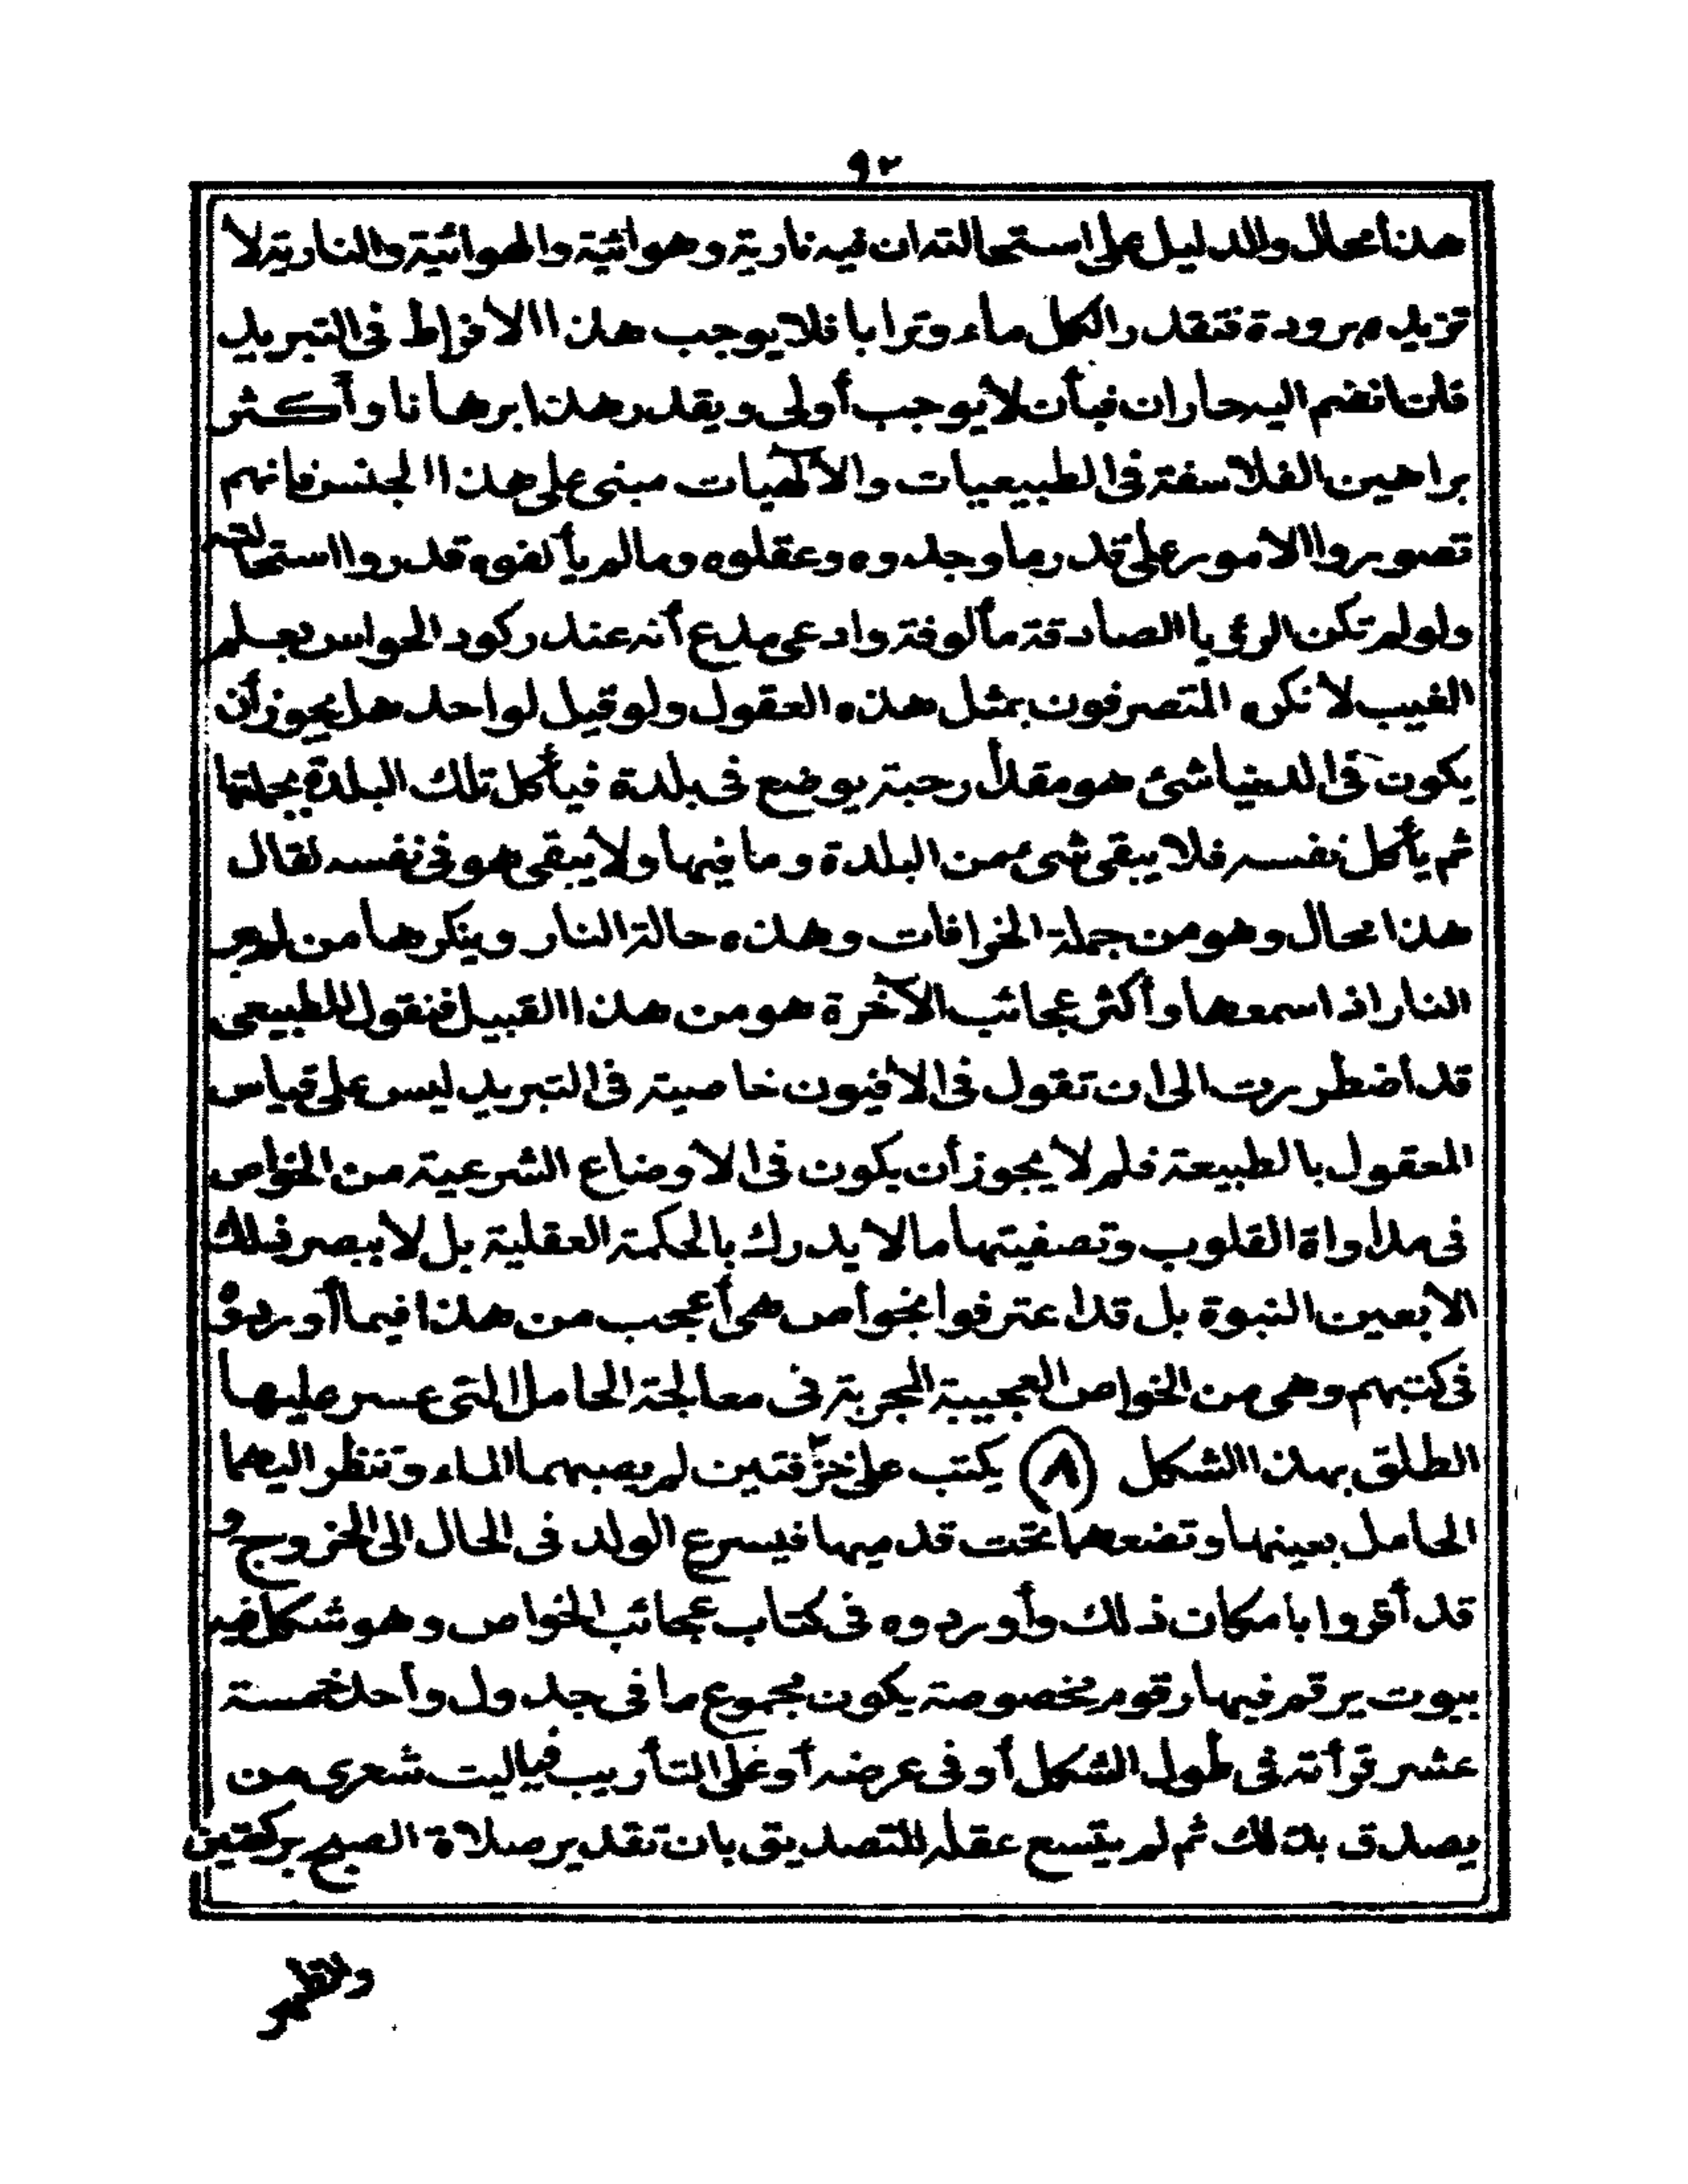 ٩٢
هذا محال والدليل على استحالته ان فيه نارية وهوائية والهوائية والنارية لا
تزيد برودة فتقدر الكل ماء وترابا فلا يوجب هذا الافراط فى التبريد
فان انضم اليه حاران فبأن لا يوجب أولى ويقدر هذا برهانا وأكثر
براهين الفلاسفة فى الطبيعيات والآلهيات مبنى على هذا الجنس فانهم
تصوروا الامور على قدر ما وجدوه وعقلوه وما لم يألفوه قدروا استحالته
ولو لم تكن الرؤيا الصادقة مألوفة وادعى مدع أنه عند ركود الحواس يعلم
الغيب لانكره المتصرفون بمثل هذه العقول ولو قيل لواحد هل يجوز أن
يكون فى الدنيا شئ هو مقدار حبة يوضع فى بلدة فيأكل تلك البلدة بجملتها
ثم يأكل نفسه فلا يبقى شئ من البلدة وما فيها ولا يبقى هو فى نفسه لقال
هذا محال وهو من جملة الخرافات وهذه حالة النار وينكرها من لم ير
النار اذا سمعها وأكثر عجائب الآخرة هو من هذا القبيل فنقول للطبيعى
قد اضطررت الى ان تقول فى الافيون خاصية فى التبريد ليس على قياس
المعقول بالطبيعة فلم لا يجوز أن يكون فى الاوضاع الشرعية من الخواص
فى مداواة القلوب وتصفيتها ما لا يدرك بالحكمة العقلية بل لا يبصر ذلك
الا بعين النبوة بل قد اعترفوا بخواص هى أعجب من هذا فيما أوردوه
فى كتبهم وهى من الخواص العجيبة المجربة فى معالجة الحامل التى عسر عليها
الطلق بهذا الشكل (٨) يكتب على خرقتين لم يصبهما الماء وتنظر اليهما
الحامل بعينها وتضعهما تحت قدميها فيسرع الولد فى الحال الى الخروج و
قد أقروا بامكان ذلك وأوردوه فى كتاب عجائب الخواص وهو شكل فيه
بيوت يرقم فيها رقوم مخصوصة يكون مجموع ما فى جدول واحد خمسة
عشر قرأته فى طول الشكل أو فى عرضه أو على التأريب فياليت شعرى من
يصدق بذلك ثم لم يتسع عقله للتصديق بان تقدير صلاة الصبح بركعتين
والظهر